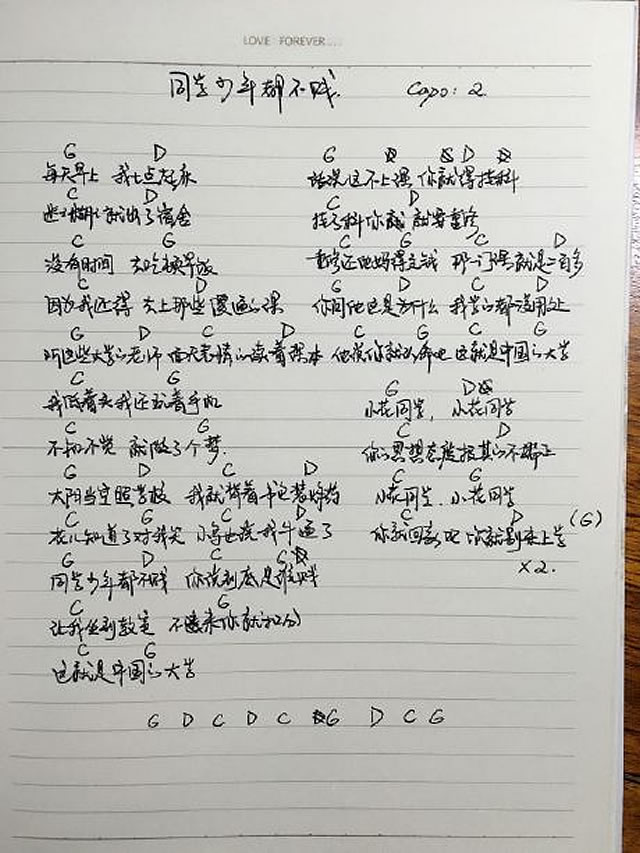 LOVE FOREVER....
同学少年都不贱. Capo: 2.
G D
每天早上 我七点起床
C D
迷迷糊糊就出了宿舍
C G
没有时间 去吃顿早饭
C D
因为我还得 去上那些 的课
G D C D
听这些大学的老师 面无表情的读着课本
C G
我低着头我还玩着手机
C G
不知不觉 就做了个梦.
G D C D
太阳当空照学校 我就背着书包装炸药
C G C D
花儿知道了对我笑 小鸟也说我牛逼了
G D C G
同学少年都不贱 你说到底是谁贱
C G
让我坐到教室 不愿来你就扣分
C G
这就是中国的大学
G D
结果这不上课 你就得挂科
C D
挂了科你就 就要重修
C G C D
重修还他妈得交钱 那一门课就是二百多
G D C D
你问他这是为什么 我学的都没用处
C G C G
他说你就认命吧 这就是中国的大学
G D
小花同学, 小花同学
C D
你的思想态度极其的不端正
C G
小花同学. 小花同学
C D (G)
你就回家吧 你就别来上学
×2.
G D C D C G D C G